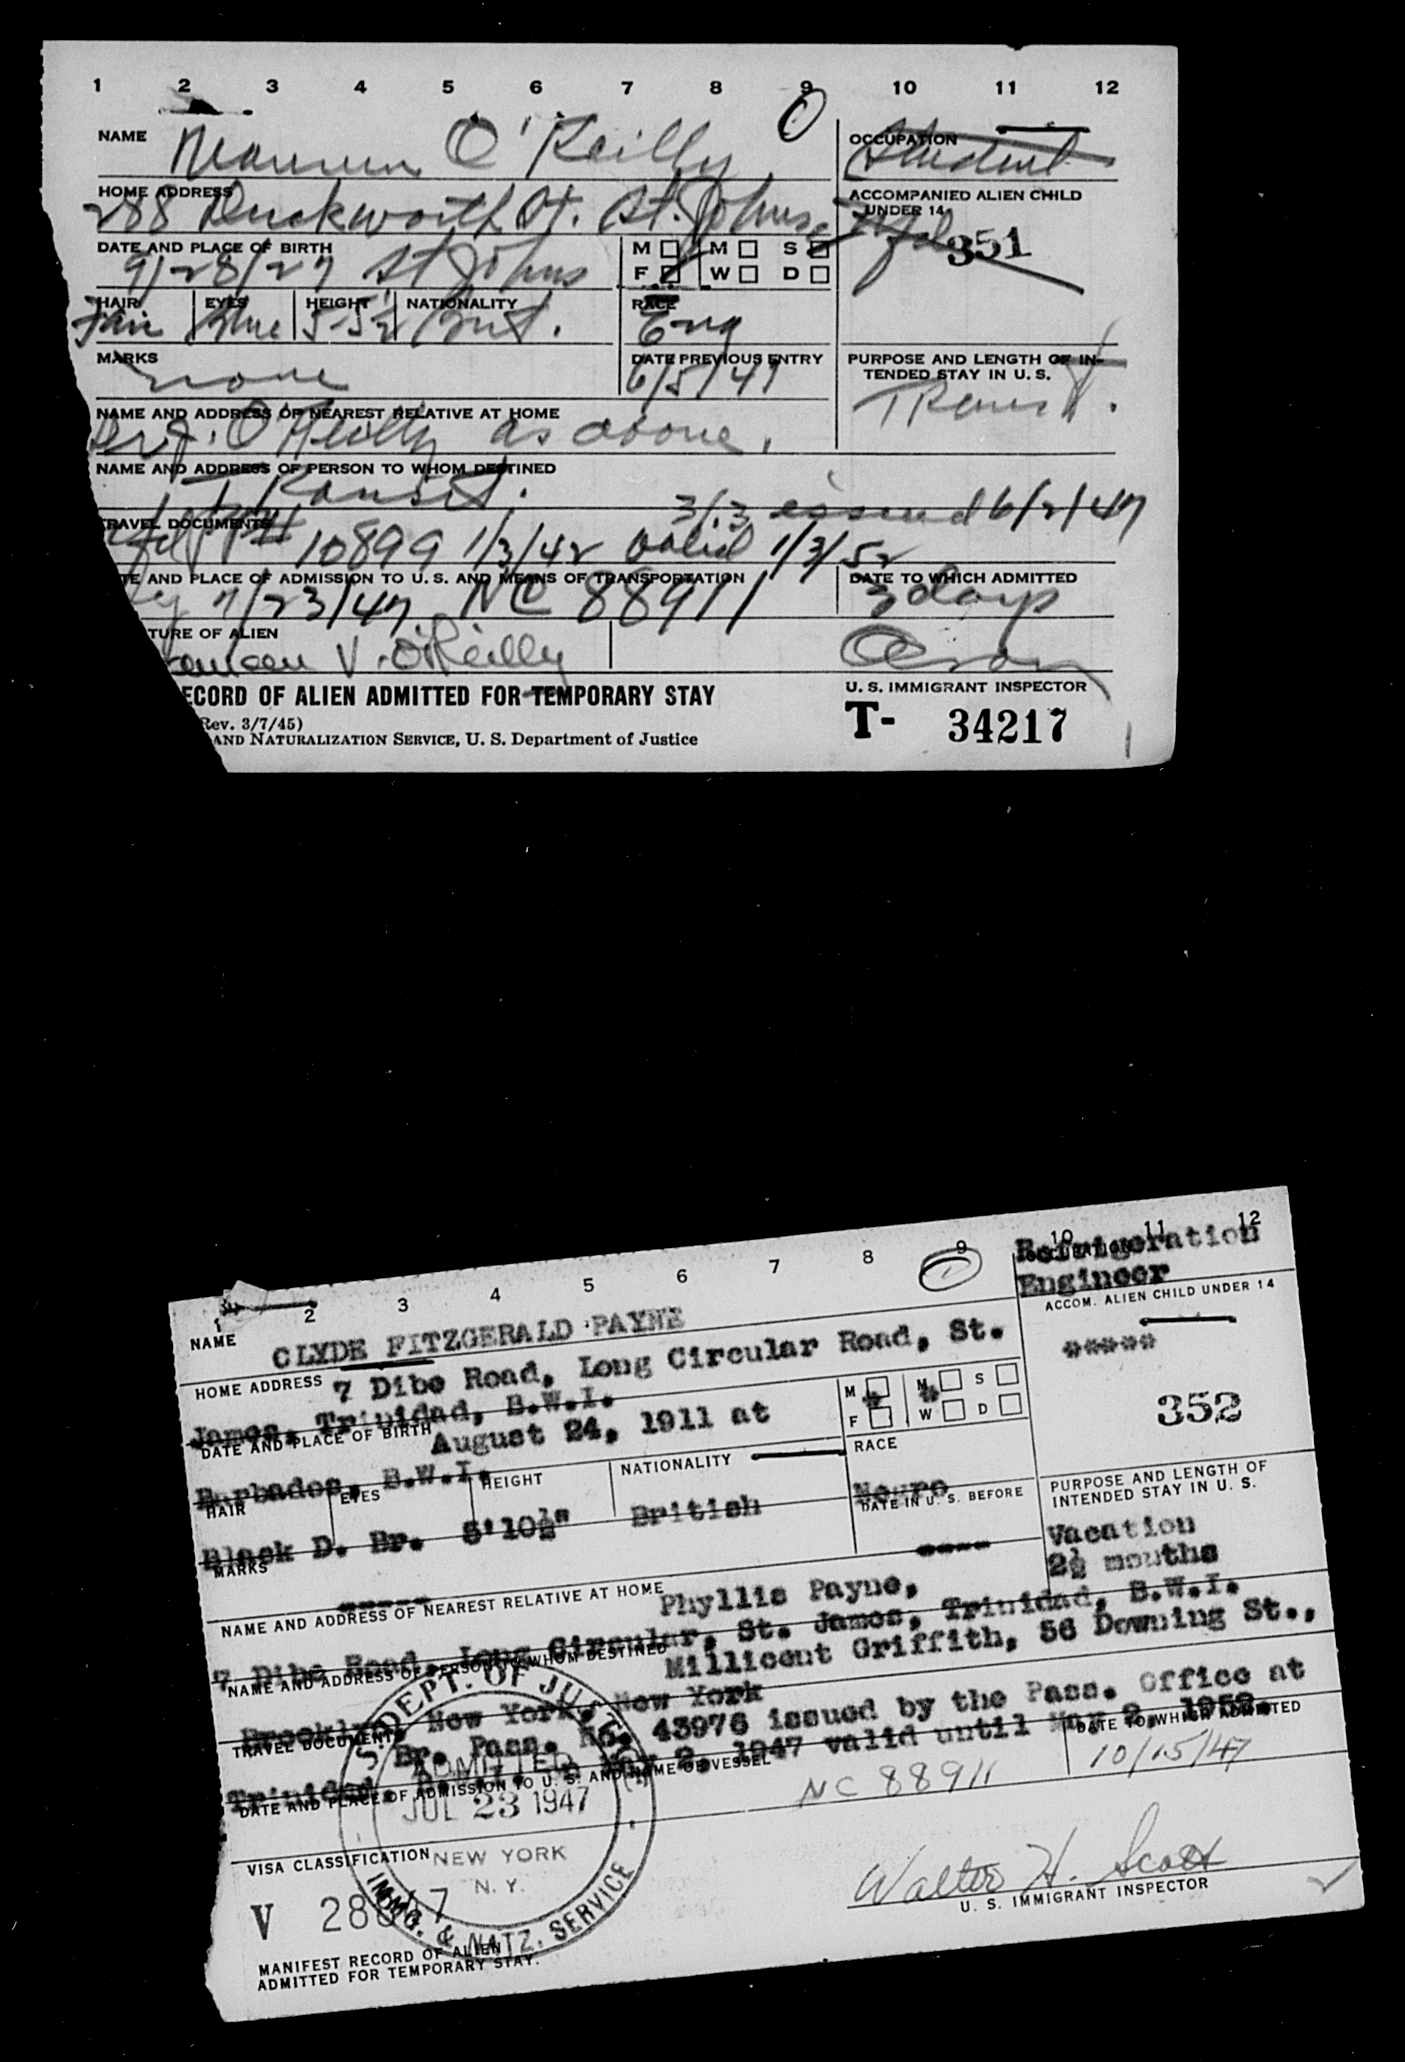 1 2 3 4 5 6 7 8 9 10 11 12
NAME Maureen O'Reilly
OCCUPATION Student
HOME ADDRESS
288 Duckworth St. St. Johns, Nfld
ACCOMPANIED ALIEN CHILD
UNDER 14
351
DATE AND PLACE OF BIRTH
9/28/27 St Johns
M M S
F W D
HAIR EYES HEIGHT NATIONALITY RACE
Fair Blue 5-5½ Brit. Eng
MARKS
none
DATE PREVIOUS ENTRY
6/5/47
PURPOSE AND LENGTH OF IN-
TENDED STAY IN U. S.
Transit.
NAME AND ADDRESS OF NEAREST RELATIVE AT HOME
O'Reilly as above.
NAME AND ADDRESS OF PERSON TO WHOM DESTINED
Transit.
3/3 issued 6/2/47
TRAVEL DOCUMENTS
Nfld PPt 10899 1/3/42 valid 1/3/52
TE AND PLACE OF ADMISSION TO U. S. AND MEANS OF TRANSPORTATION
7/23/47 NC 88911
DATE TO WHICH ADMITTED
3 days
TURE OF ALIEN
aureen V. O'Reilly
U. S. IMMIGRANT INSPECTOR
ECORD OF ALIEN ADMITTED FOR TEMPORARY STAY
Rev. 3/7/45)
AND NATURALIZATION SERVICE, U. S. Department of Justice
T- 34217
1 2 3 4 5 6 7 8 9 10 11 12
NAME CLYDE FITZGERALD PAYNE
Refrigeration
Engineer
ACCOM. ALIEN CHILD UNDER 14
*****
352
HOME ADDRESS 7 Dibe Road, Long Circular Road, St.
James, Trinidad, B.W.I.
DATE AND PLACE OF BIRTH August 24, 1911 at
Barbados, B.W.I.
M M S
F W D
HAIR EYES HEIGHT NATIONALITY RACE
Black D. Br. 5'10½" British Negro
MARKS
DATE IN U. S. BEFORE
PURPOSE AND LENGTH OF
INTENDED STAY IN U. S.
Vacation
2½ months
NAME AND ADDRESS OF NEAREST RELATIVE AT HOME Phyllis Payne,
7 Dibe Road, Long Circular, St. James, Trinidad, B.W.I.
NAME AND ADDRESS OF PERSON TO WHOM DESTINED Millicent Griffith, 56 Downing St.,
Brooklyn, New York, New York
TRAVEL DOCUMENTS Br. Pass. No. 43976 issued by the Pass. Office at
Trinidad, May 2, 1947 valid until May 2, 1952.
DATE TO WHICH ADMITTED
10/15/47
DATE AND PLACE OF ADMISSION TO U. S. AND NAME OF VESSEL
NC 88911
U. S. DEPT. OF JUSTICE
ADMITTED
JUL 23 1947
NEW YORK
N. Y.
IMMG. & NATZ. SERVICE
VISA CLASSIFICATION
V 28
Walter H. Scott
U. S. IMMIGRANT INSPECTOR
MANIFEST RECORD OF ALIEN
ADMITTED FOR TEMPORARY STAY.